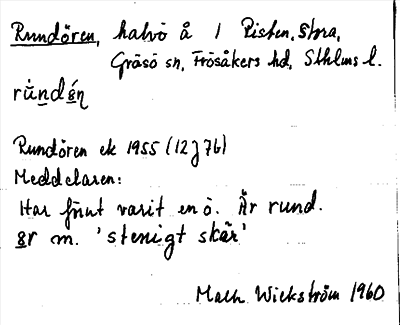 Rundören, halvö å 1 Risten, Stora,
Gräsö sn, Frösåkers hd, Sthlms l.
rùndǿn
Rundören ek 1955 (12J7b)
Meddelaren:
Har förut varit en ö. Är rund.
ør m. 'stenigt skär'
Math. Wickström 1960